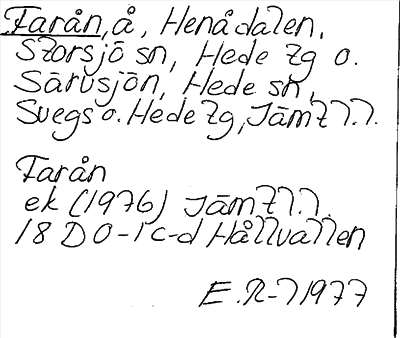 Farån, å, Henådalen,
Storsjö sn, Hede tg o.
Särvsjön, Hede sn,
Svegs o. Hede tg, Jämtl.l.
Farån
ek (1976) Jämtl.l.
18 D 0-1 c-d Hållvallen
E.R-l 1977